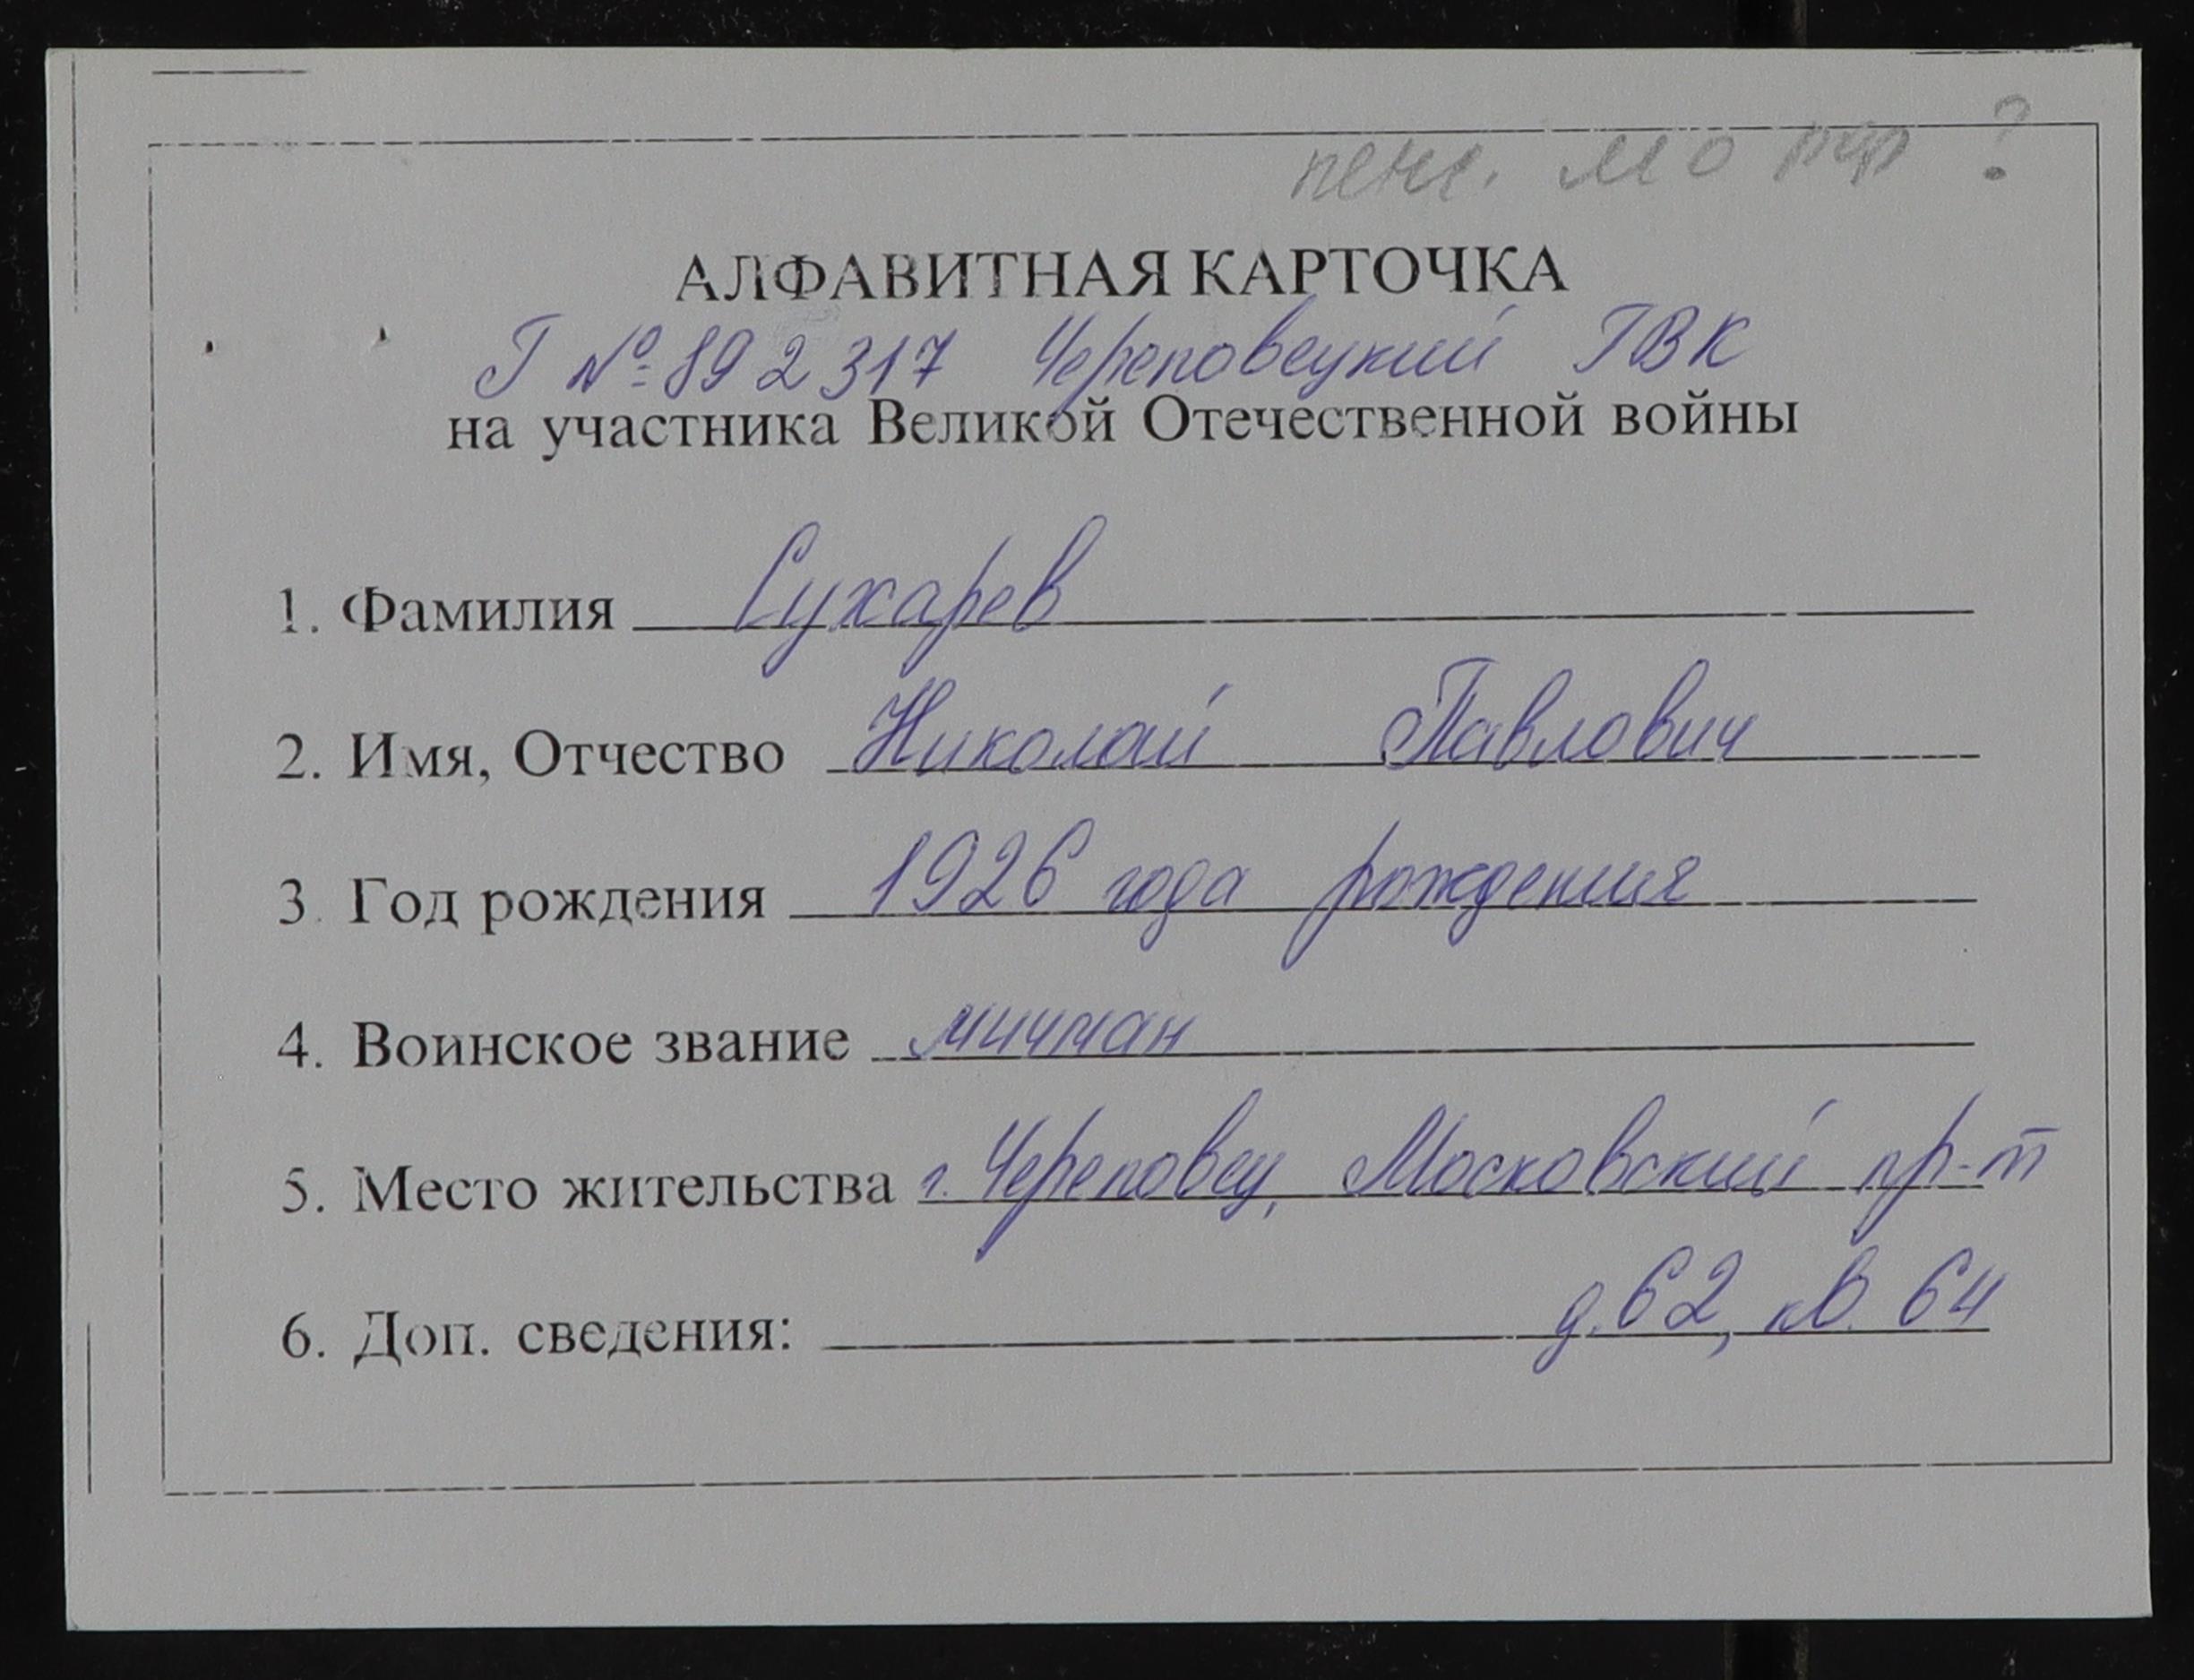 пенс. МО РФ ?
АЛФАВИТНАЯ КАРТОЧКА
Г № 892317 Череповецкий ГВК
на участника Великой Отечественной войны
1. Фамилия Сухарев
2. Имя, Отчество Николай Павлович
3. Год рождения 1926 года рождения
4. Воинское звание мичман
5. Место жительства г. Череповец, Московский пр-т
6. Доп. сведения: д. 62, кв. 64